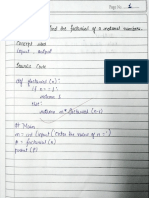 Page No. 1
find the factorial of a natural numbers.
Concept used
input, output
Source Code
def factorial (n):
if n == 1:
return 1
else:
return n*factorial (n-1)
# Main
n = int (input ("Enter the value of n ="))
= factorial (n)
print (